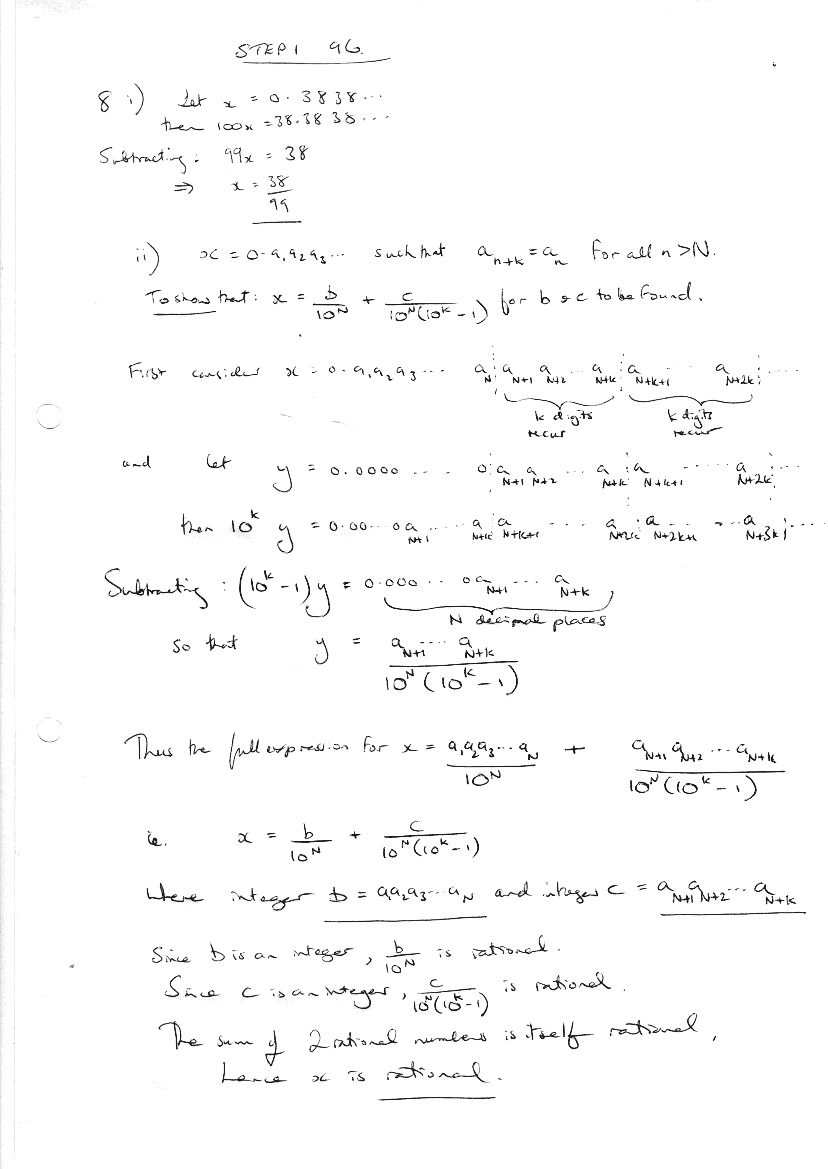 STEP 1 96.
8 i) Let x = 0.3838...
then 100x = 38.3838...
Subtracting: 99x = 38
⇒ x = 38/99
ii) x = 0.a₁a₂a₃... such that a_{n+k} = a_n for all n > N.
To show that: x = b/10^N + c/(10^N(10^k - 1)) for b & c to be found.
First consider x = 0.a₁a₂a₃... a_N a_{N+1} a_{N+2} ... a_{N+k} a_{N+k+1} a_{N+2k} ....
k digits recur k digits recur
and let y = 0.0000 .... 0 a_{N+1} a_{N+2} ... a_{N+k} a_{N+k+1} ..... a_{N+2k} ...
then 10^k y = 0.00...0 a_{N+1} ... a_{N+k} a_{N+k+1} .... a_{N+2k} a_{N+2k+1} ... a_{N+3k} ....
Subtracting: (10^k - 1)y = 0.000... 0 a_{N+1} ... a_{N+k}
N decimal places
so that y = a_{N+1} .... a_{N+k} / (10^N(10^k - 1))
Thus the full expression for x = a₁a₂a₃...a_N / 10^N + a_{N+1} a_{N+2} ... a_{N+k} / (10^N(10^k - 1))
ie. x = b/10^N + c/(10^N(10^k - 1))
where integer b = a₁a₂a₃...a_N and integer c = a_{N+1} a_{N+2} ... a_{N+k}
Since b is an integer, b/10^N is rational.
Since c is an integer, c/(10^N(10^k - 1)) is rational.
The sum of 2 rational numbers is itself rational,
hence x is rational.